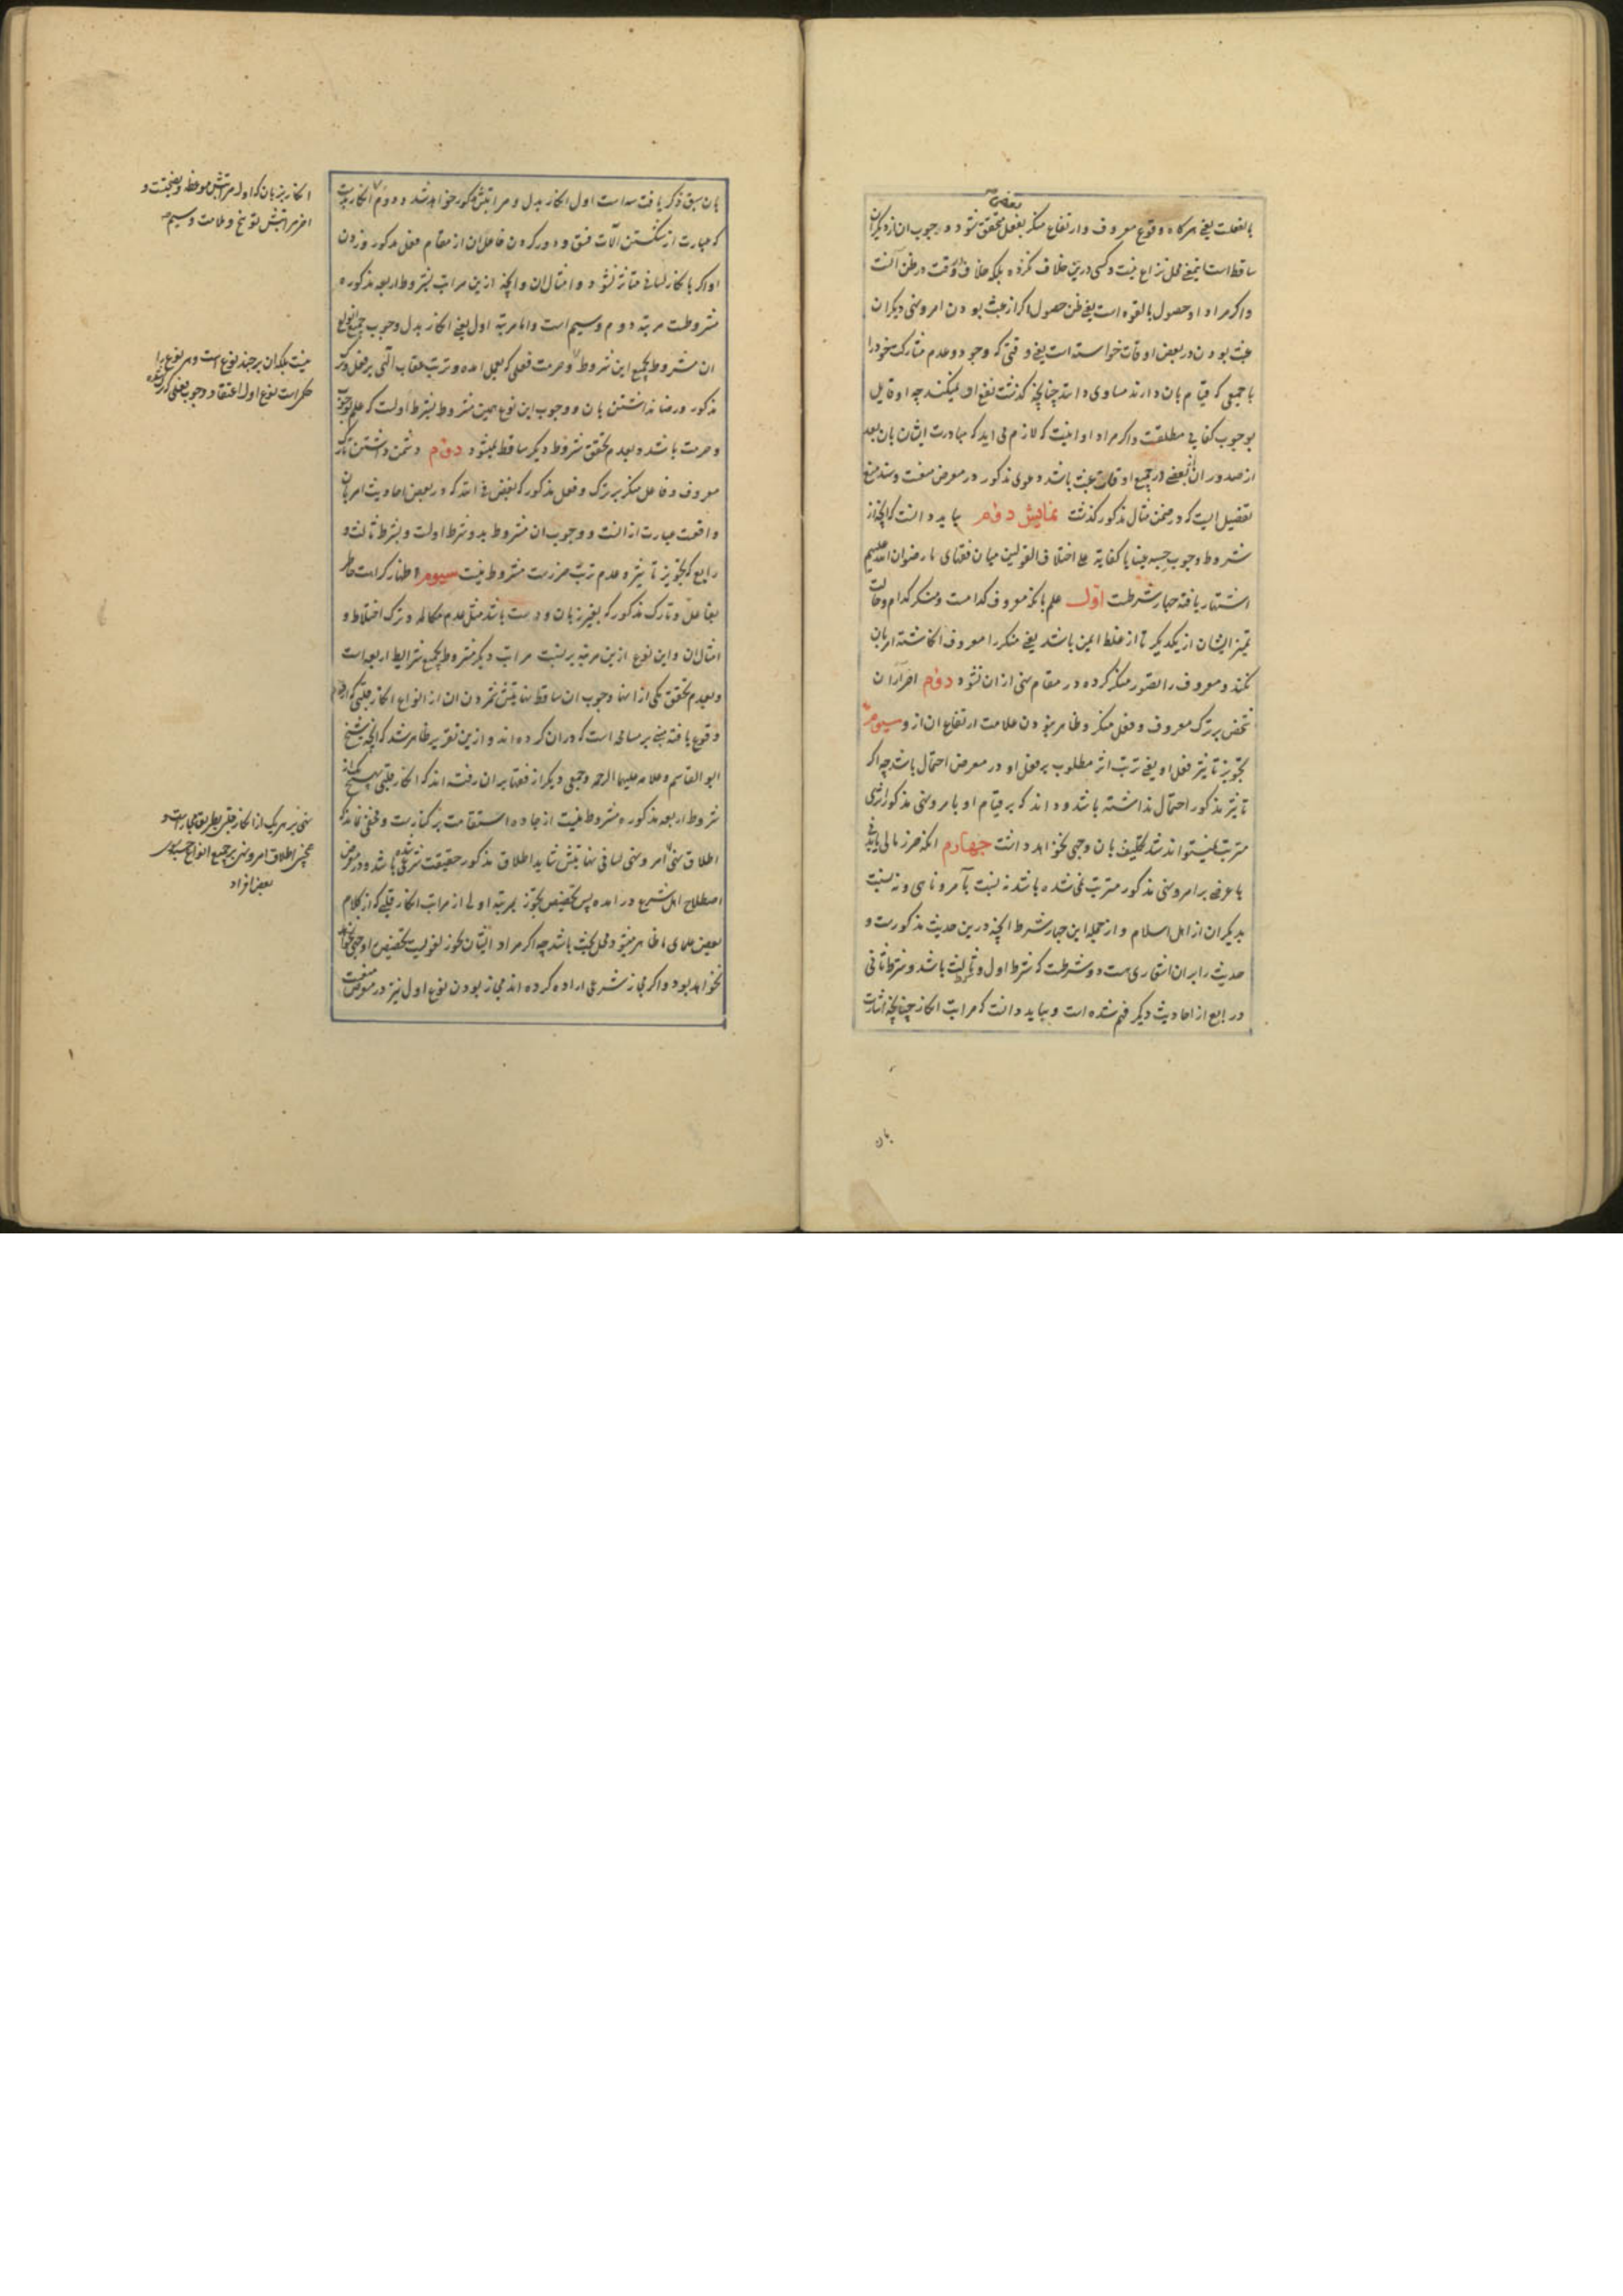 بالفعلت یعنی هرکاه وقوع معروف وارتفاع منکر بفعل بعضی متحقق شود وجوب ان از دیکران
ساقط است اینمعنی محل نزاع نیست و کسی درین خلاف نکرده بلکه خلاف در وقت ظن آنست
واکر مراد او حصول بالقوه است یعنی ظن حصول اکر از عبث بودن امر و نهی دیکران
عبث بودن در بعض اوقات خواسته است یعنی وقتی که وجود و عدم مشارکت خود را
با جمعی که قیام بان دارند مساوی دانند چنانچه کذشت نفع او نمیکند چه او قایل
بوجوب کفایی مطلقست واکر مراد او اینست که لازم می اید که مبادرت ایشان بان بعد
از صدور ان از بعضی در جمیع اوقات عبث باشد دعوی مذکور در معرض منعست و سند منع
تفصیلیست که در ضمن مثال مذکور کذشت نمایش دوم بباید دانست که انچه از
شروط وجوب حسبه عینا یا کفایة علی اختلاف القولین میان فقهای ما رضوان الله علیهم
اشتهار یافته چهار شرطست اول علم بانکه معروف کدامست و منکر کدام و حالت
تمیز ایشان از یکدیکر تا از غلط ایمن باشد یعنی منکر را معروف انکاشته امر بان
نکند و معروف را تصور منکر کرده در مقام نهی از ان نشود دوم اصرار ان
شخص بر ترک معروف و فعل منکر و ظاهر نبودن علامت ارتفاع ان از و سیوم
تجویز تاثیر فعل او یعنی ترتب اثر مطلوب بر فعل او در معرض احتمال باشد چه اکر
تاثیر مذکور احتمال نداشته باشد و داند که بر قیام او بامر و نهی مذکور اثری
مترتب نمیتواند شد تکلیف بان وجهی نخواهد داشت چهارم انکه ضرر مالی یا بدنی
یا عرضی بر امر و نهی مذکور مترتب نمی شده باشد نه نسبت بآمر و ناهی و نه نسبت
بدیکران از اهل اسلام و از جمله این چهار شرط انچه درین حدیث مذکورست و
حدیث را بران اشعاری هست دو شرطست که شرط اول و ثالث باشد و شرط ثانی
و رابع از احادیث دیکر فهم شده است و بباید دانست که مراتب انکار چنانچه اشارت
بان
بان سبق ذکر یافت سه است اول انکار بدل و مراتبش مذکور خواهد شد و دوم انکار بدست
که عبارت از شکستن آلات فسق و دور کردن فاعل ان از مقام فعل مذکور و زدن
او اکر بانکار لسانی متاثر نشود و امثال ان و انچه ازین مراتب بشروط اربعه مذکوره
مشروطست مرتبه دوم و سیم است واما مرتبه اول یعنی انکار بدل وجوب جمیع انواع
ان مشروط بجمیع این شروط و حرمت فعلی که بعمل امده و ترتب عقاب الهی بر فعل و ترک
مذکور و رضا نداشتن بان و وجوب این نوع همین مشروط بشرط اولست که علم بوجوب
و حرمت باشد و بعدم تحقق شروط دیکر ساقط نمیشود دوم دشمن داشتن تارک
معروف و فاعل منکر بر ترک و فعل مذکور که بغض فی الله که در بعض احادیث امر بان
واقعست عبارت از انست و وجوب ان مشروط بدو شرط اولست و بشرط ثالث و
رابع که تجویز تاثیر و عدم ترتب ضررست مشروط نیست سیوم اظهار کراهت خاطر
بفاعل و تارک مذکور که بغیر زبان و دست باشد مثل عدم مکالمه و ترک اختلاط و
امثال ان و این نوع ازین مرتبه بر نسبت مراتب دیکر مشروط بجمیع شرایط اربعه است
و بعدم تحقق یکی از انها وجوب ان ساقط نهایتش شمردن ان از انواع انکار قلبی که از قوم
وقوع یافته مبنی بر مسامحه است که دران کرده اند و ازین تقریر ظاهر شد که انچه شیخ
ابو القاسم و علامه علیهما الرحمه و جمعی دیکر از فقها بران رفته اند که انکار قلبی بهیچ یک از
شروط اربعه مذکوره مشروط نیست از جاده استقامت بر کنارست و مخفی نماند که
اطلاق نهی امر و نهی لسانی نهایتش شاید اطلاق مذکور حقیقت شرعی شده باشد و در معرض
اصطلاح اهل شرع در امده پس تخصیص تجوز بمرتبه اولی از مراتب انکار قلبی که از کلام
بعض علما ظاهر میشود محل بحث باشد چه اکر مراد ایشان تجوز لغویست تخصیص او جهی نخواهد
نخواهد بود و اکر مجاز شرعی اراده کرده اند مجاز بودن نوع اول نیز در معرض منعست
انکار بزبان که اول مراتبش موعظه و نصیحتست و
اخر مراتبش توبیخ و ملامت و سیم
نیست بلکه ان بر چند نوع است و هر نوع را
حکمی است نوع اول اعتقاد وجوب فعلی که ترک شده
نهی بر هر یک از انکار قلبی بطریق مجازست و
همچنین اطلاق امر و نهی بر جمیع انواع حسبه
بعض افراد